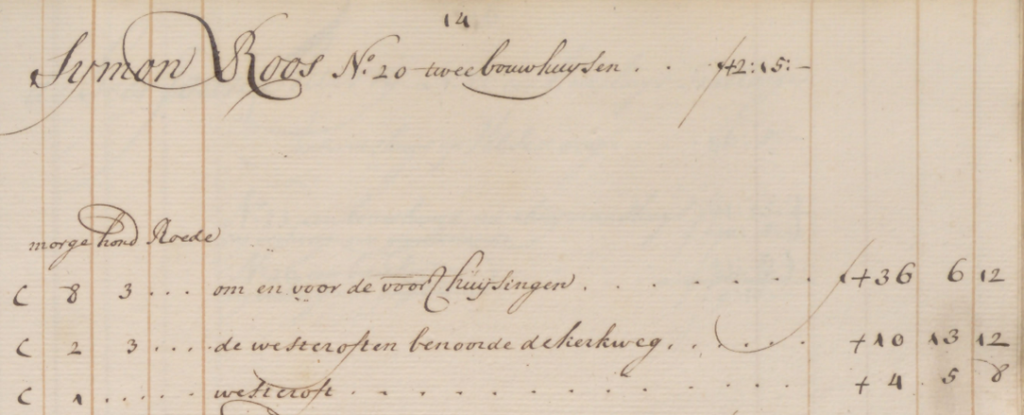 14
Symon Roos No. 20 twee bouwhuysen . . f42:15:-
morge hond Roede
C 8 3 ... om en voor de voorsz huijsingen . . . . . . . f+36 6 12
C 2 3 .... de westeroften benoorde de kerkweg . . . . . . +10 13 12
C 1 ..... westeroft . . . . . . . . . . . . +4 5 8